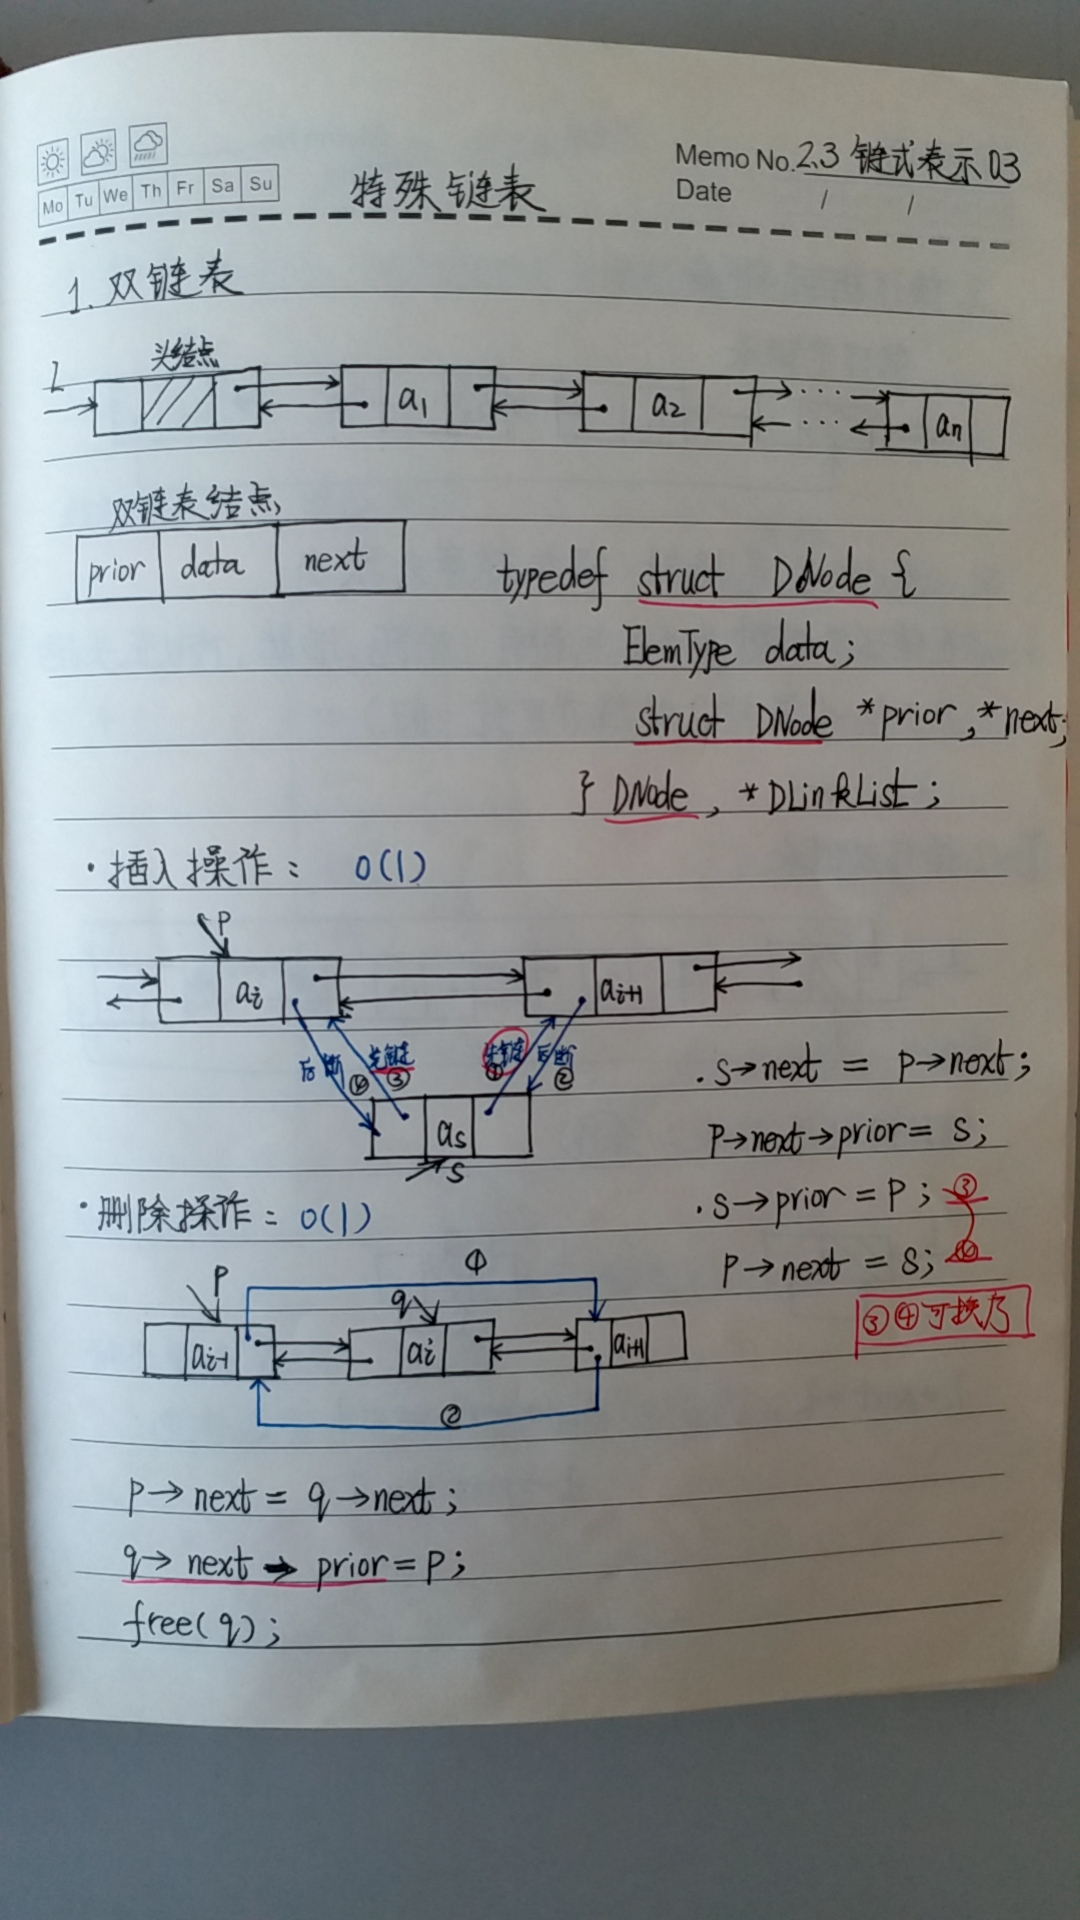 Memo No. 2.3 链式表示03
Mo Tu We Th Fr Sa Su
特殊链表
Date / /
1. 双链表
头结点
L
a1 a2 ··· ··· an
双链表结点
prior data next
typedef struct DNode {
ElemType data;
struct DNode *prior, *next;
} DNode, *DLinkList;
·插入操作: O(1)
P
ai ai+1
后断 ④ 先链 ③ 先链 ① 后断 ②
as
S
·s→next = p→next;
p→next→prior = s;
·s→prior = p; ③
p→next = s; ④
③④可换序
·删除操作: O(1)
①
P q
ai-1 ai ai+1
②
p→next = q→next;
q→next→prior = p;
free(q);